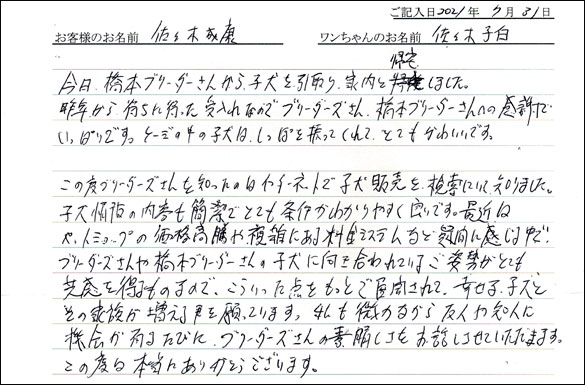 ご記入日2021年7月31日
お客様のお名前 佐々木成康 ワンちゃんのお名前 佐々木子白
帰宅
今日、橋本ブリーダーさんから、子犬を引取り、家内と しました。
昨年から待ちに待った受入れなのでブリーダーズさん、橋本ブリーダーさんへの感謝で
いっぱいです。ケージの中の子犬は、しっぽを振ってくれて、とてもかわいいです。
この度ブリーダーズさんを知ったのはインターネットで子犬販売を、検索にて、知りました。
子犬 の内容も簡潔でとても条件がわかりやすく良いです。最近は
ペットショップの価格高騰や複雑にある料金システムなど疑問に感じる中で、
ブリーダーズさんや橋本ブリーダーさんの子犬に向き合われているご姿勢がとても
共感を得るものすので、こういった点をもっとご自問されて、幸せな子犬と
その家族が増える事を願っています。私も微力ながら友人や知人に
機会が有るたびに、ブリーダーズさんの素晴しさをお話しさせていただきます。
この度は本当にありがとうございます。